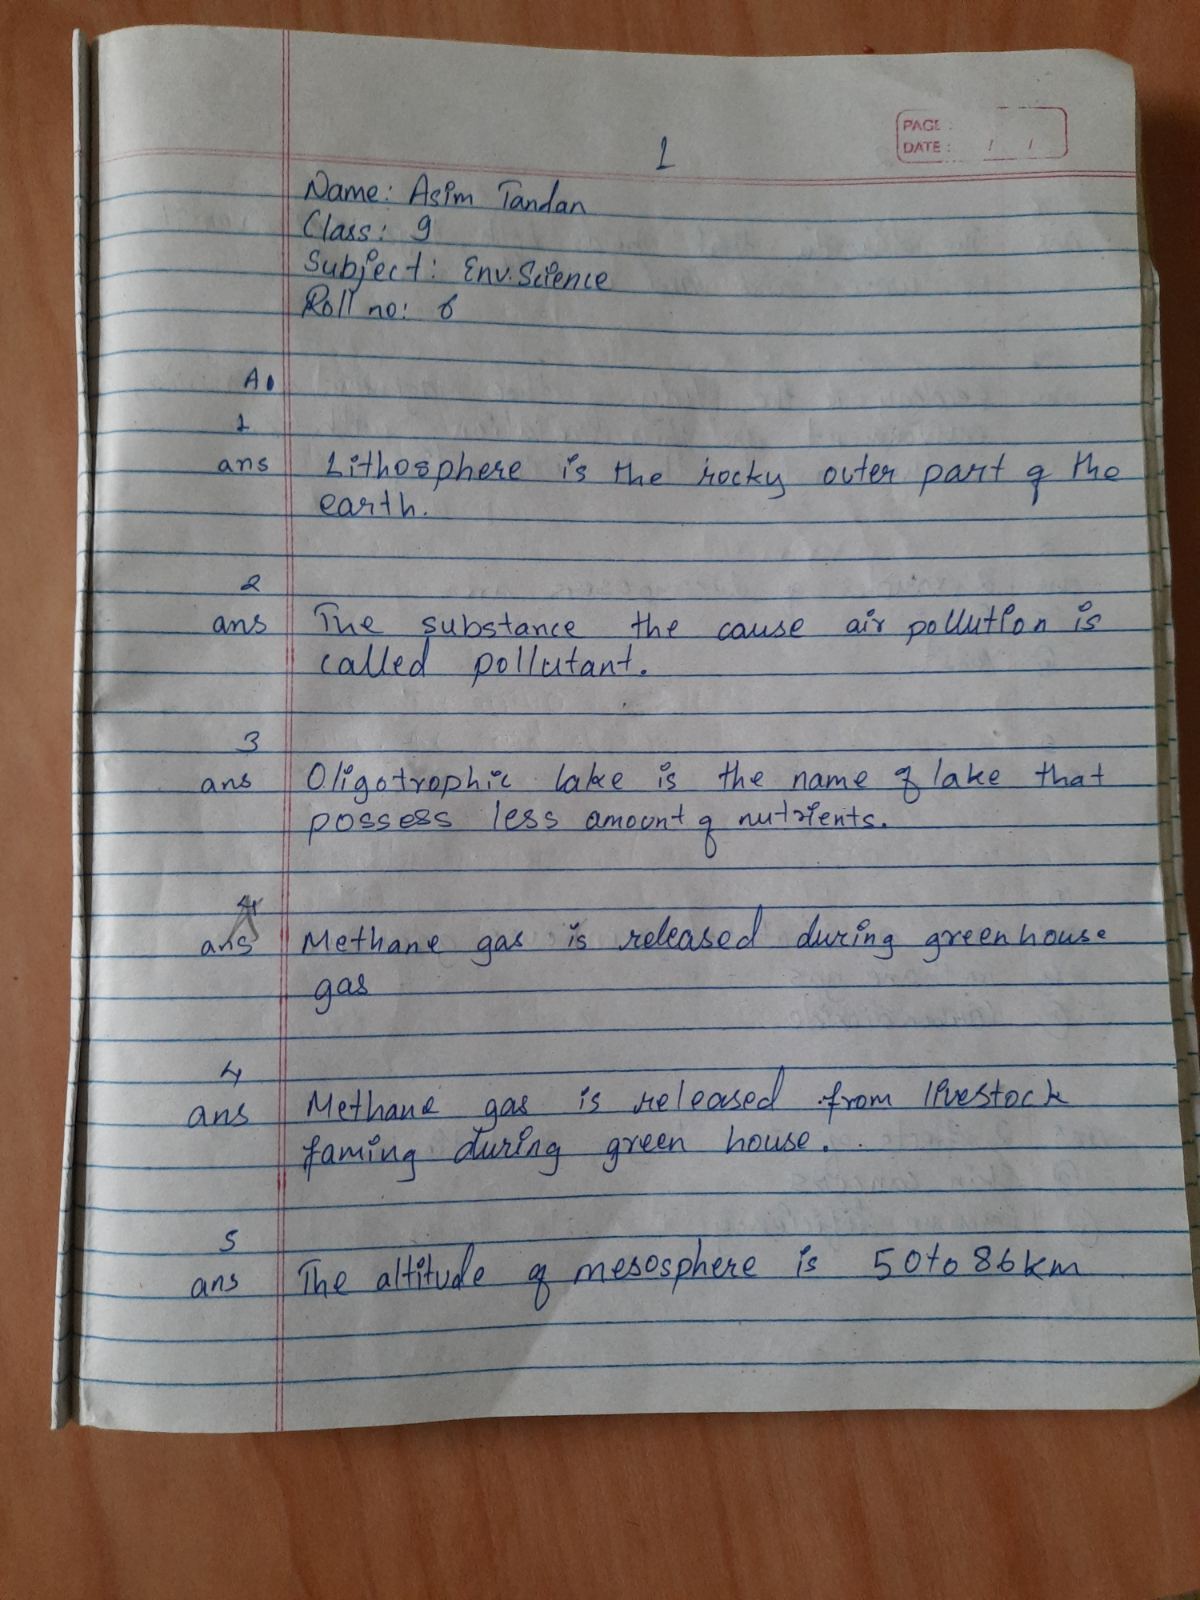 PAGE :
DATE : / /
1
Name: Asim Tandan
Class: 9
Subject: Env.Science
Roll no: 6
A.
1
ans Lithosphere is the rocky outer part of the
earth.
2
ans The substance the cause air pollution is
called pollutant.
3
ans Oligotrophic lake is the name of lake that
possess less amount of nutrients.
4
ans Methane gas is released during greenhouse
gas
4
ans Methane gas is released from livestock
faming during green house.
5
ans The altitude of mesosphere is 50 to 86 km